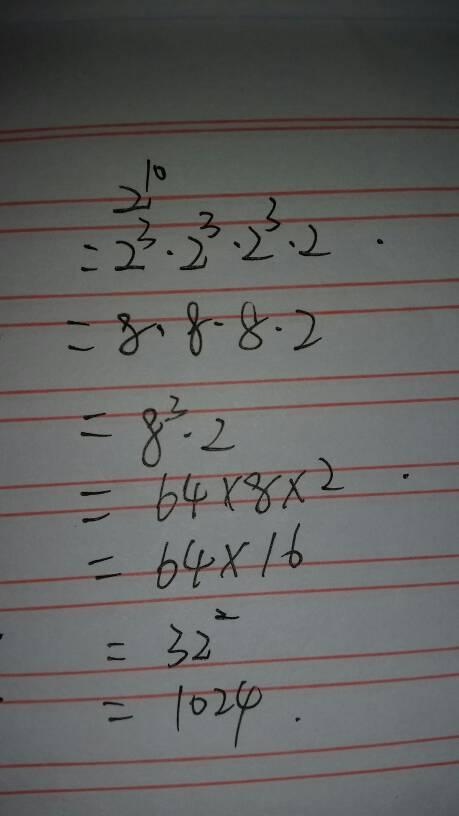 2¹⁰
= 2³ · 2³ · 2³ · 2 .
= 8 · 8 · 8 · 2
= 8³ · 2
= 64 × 8 × 2 .
= 64 × 16
= 32²
= 1024 .